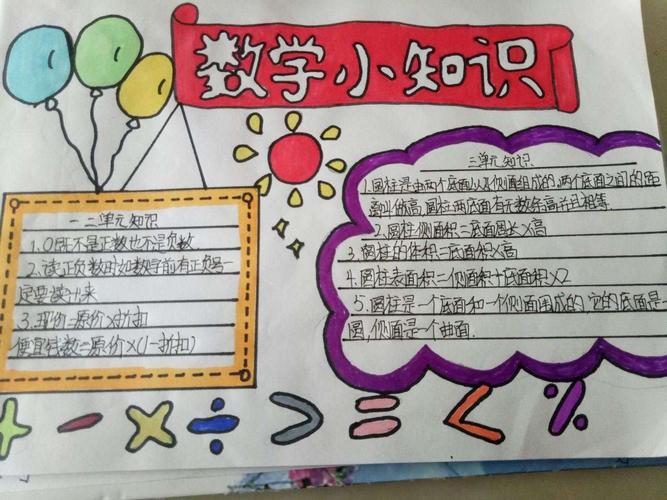 数学小知识
一二单元知识
1.0既不是正数也不是负数
2.读正负数时如数字前有正负号一
定要读出来
3.现价=原价×折扣
便宜钱数=原价×(1-折扣)
三单元知识
1.圆柱是由两个底面以及侧面组成的,两个底面之间的距
离叫做高,圆柱两底面有无数条高并且相等.
2.圆柱侧面积=底面周长×高
3.圆柱的体积=底面积×高
4.圆柱表面积=侧面积+底面积×2
5.圆柱是一个底面和一个侧面围成的,它的底面是
圆,侧面是一个曲面.
+ - × ÷ > = < %